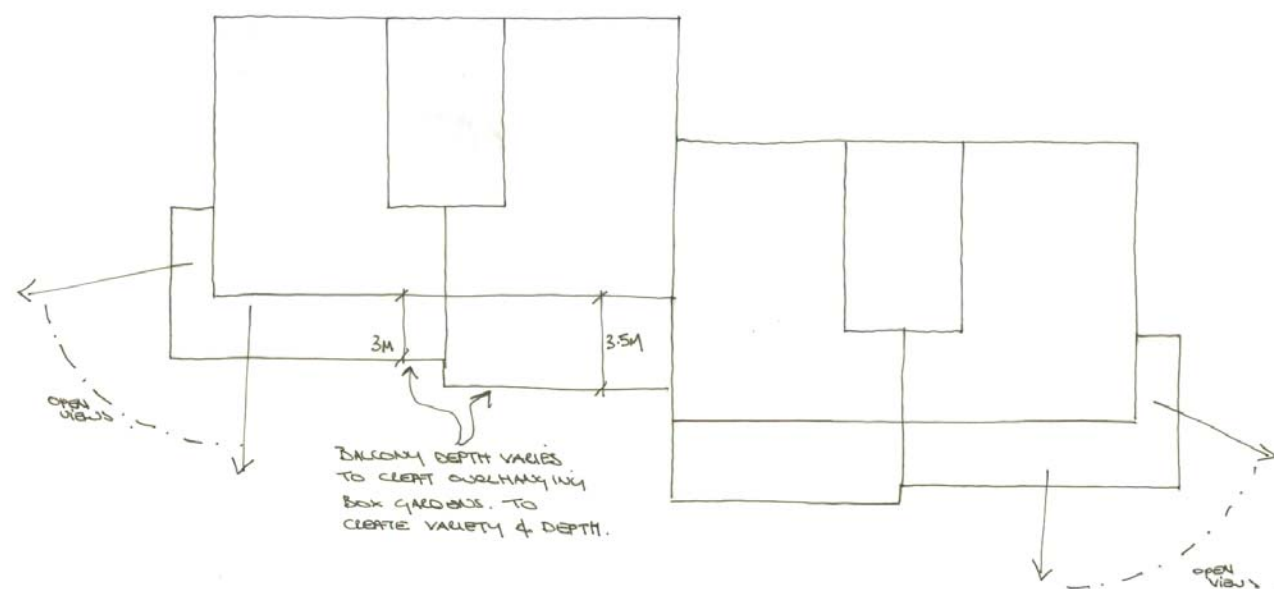 3M
3.5M
OPEN
VIEWS
BALCONY DEPTH VARIES
TO CREAT OVERHANGING
BOX GARDENS. TO
CREATE VARIETY & DEPTH.
OPEN
VIEWS